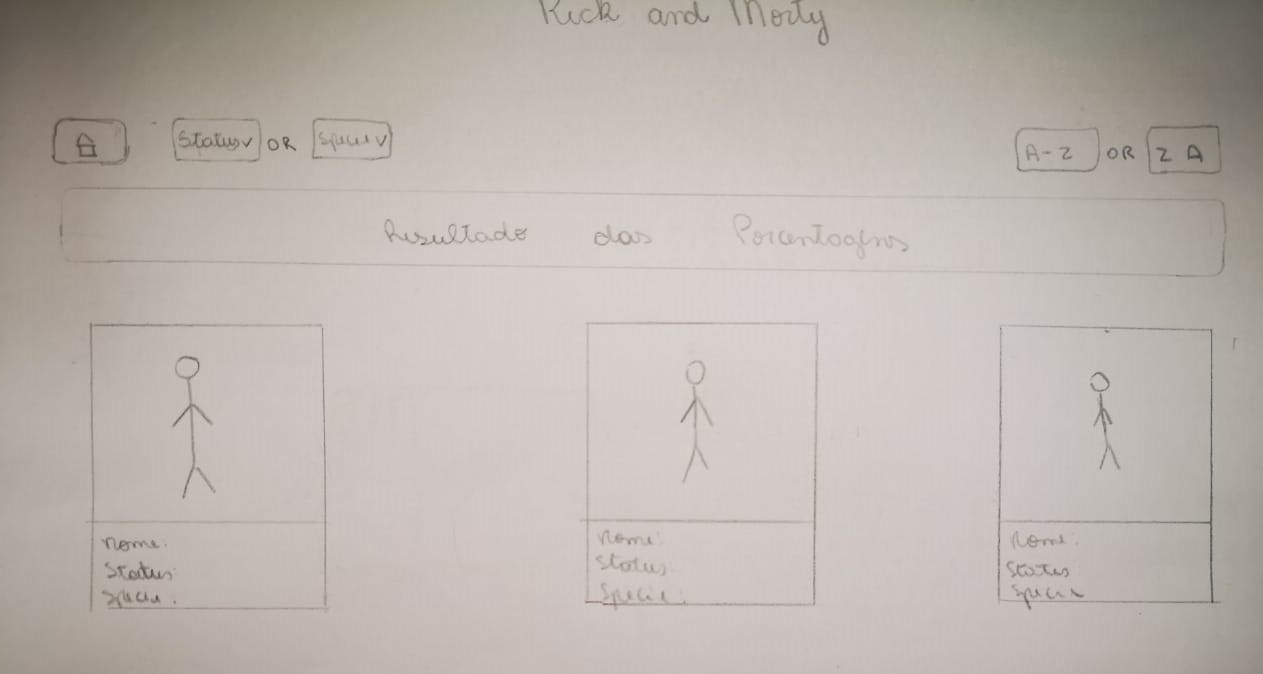 Rick and Morty
Status v OR Specie v
A-Z OR Z A
Resultado das Porcentagens
Nome:
Status:
Specie:
Nome:
Status:
Specie:
Nome:
Status
Specie